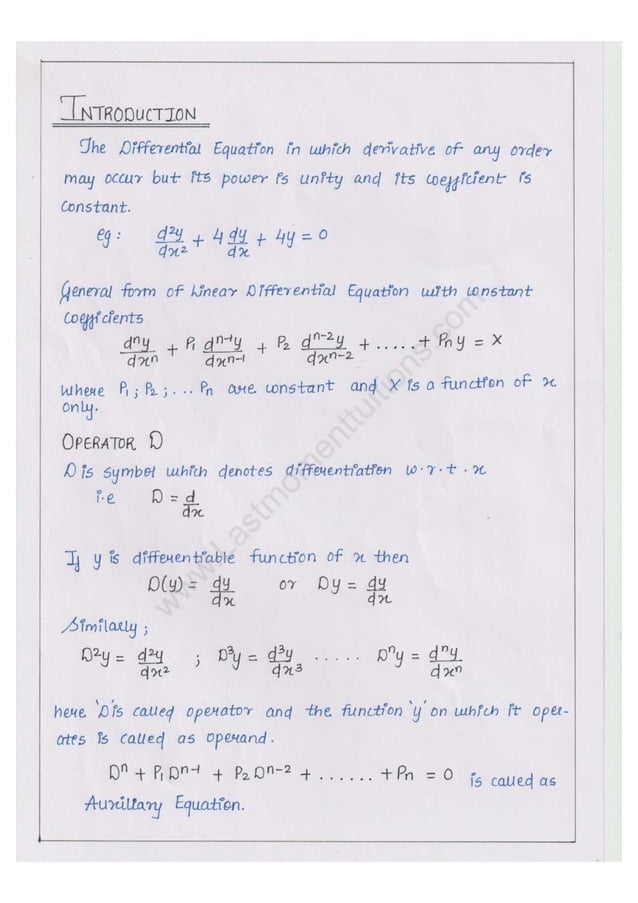 INTRODUCTION
The Differential Equation in which derivative of any order
may occur but its power is unity and its coefficient is
constant.
eg : d²y/dx² + 4 dy/dx + 4y = 0
General form of Linear Differential Equation with constant
coefficients
dⁿy/dxⁿ + P₁ dⁿ⁻¹y/dxⁿ⁻¹ + P₂ dⁿ⁻²y/dxⁿ⁻² + ..... + Pₙ y = X
where P₁ ; P₂ ; ... Pₙ are constant and X is a function of x
only.
OPERATOR D
D is symbol which denotes differentiation w.r.t.x
i.e D = d/dx
If y is differentiable function of x then
D(y) = dy/dx or Dy = dy/dx
Similarly ;
D²y = d²y/dx² ; D³y = d³y/dx³ ..... Dⁿy = dⁿy/dxⁿ
here 'D'is called operator and the function 'y' on which it oper-
ates is called as operand.
Dⁿ + P₁Dⁿ⁻¹ + P₂Dⁿ⁻² + ...... + Pₙ = 0 is called as
Auxillary Equation.
www.Lastmomenttuitions.com